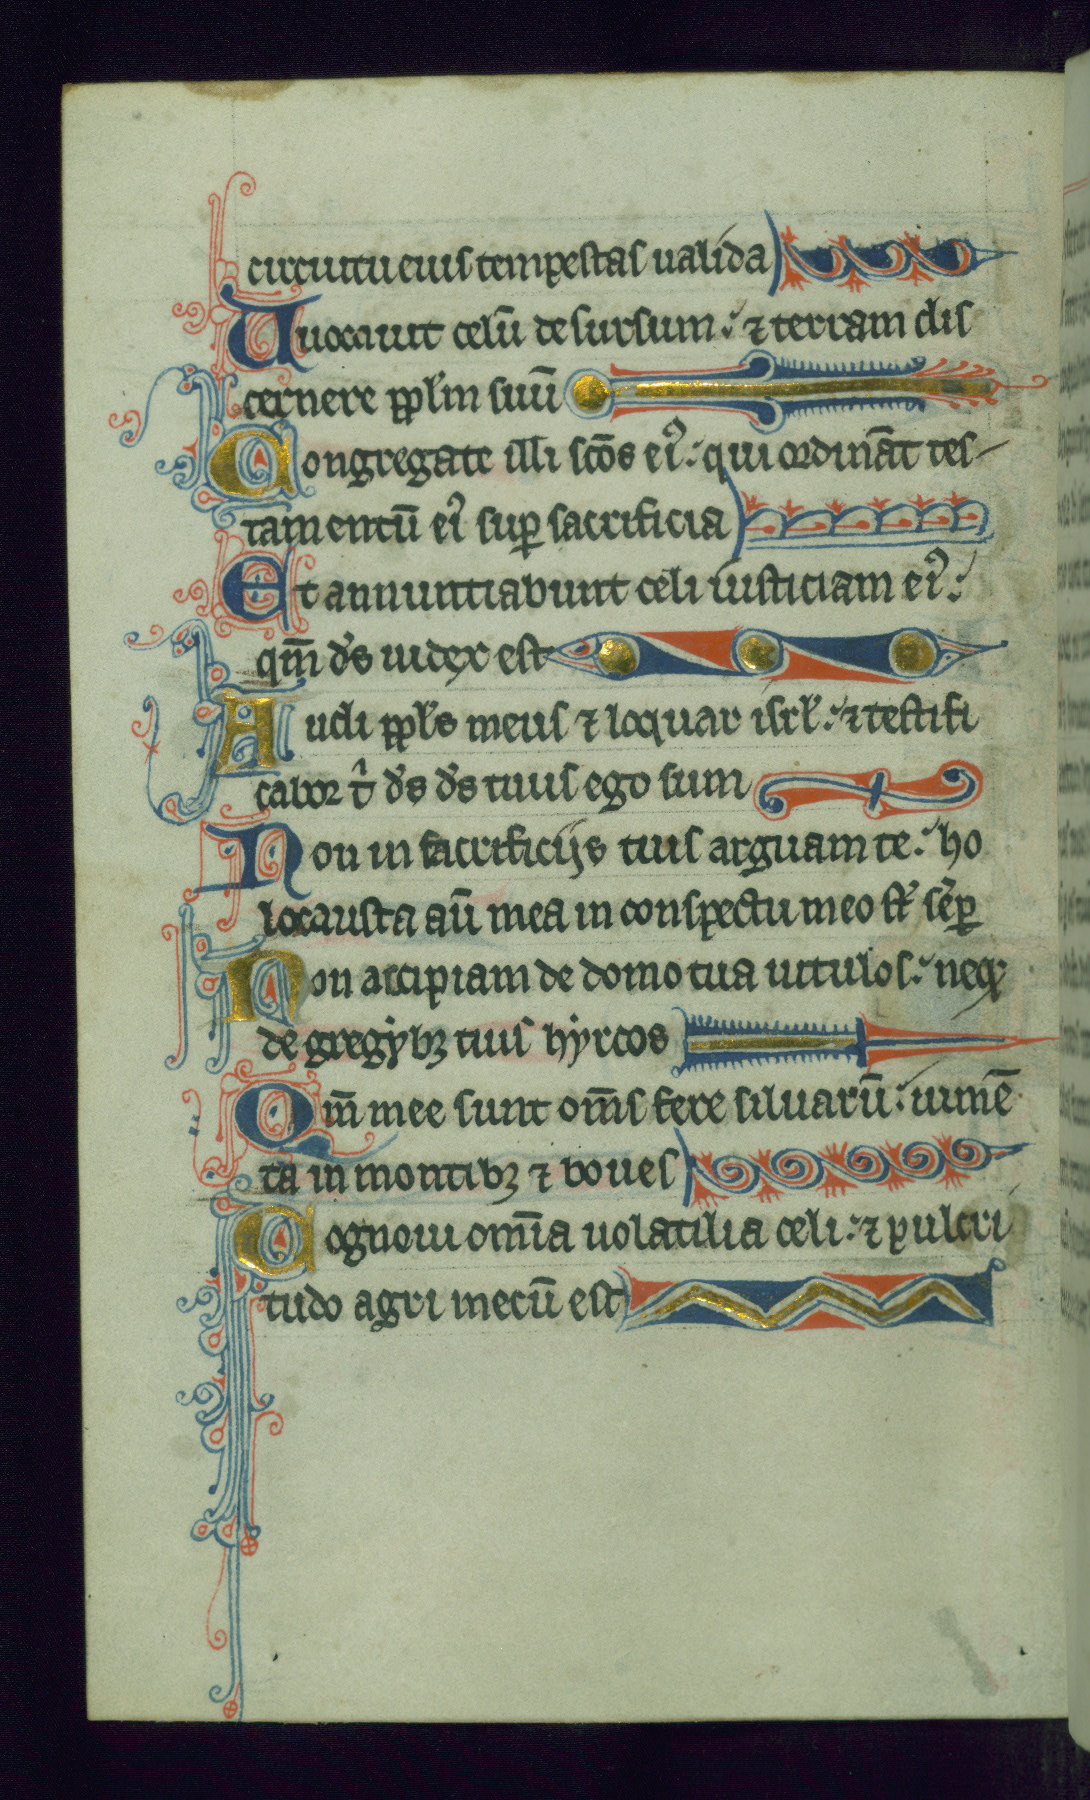 circuitu eius tempestas ualida
Auocauit celū desursum. ⁊ terram dis
cernere pp̄lm suū
Congregate illi scōs ei᾽. qui ordināt tes-
tamentū ei᾽ suꝑ sacrificia
Et annuntiabunt celi iusticiam ei᾽.
qm̄ ds̄ iudex est
Audi pp̄ls meus ⁊ loquar isrl̄. ⁊ testifi
cabor t̄ ds̄ ds̄ tuus ego sum
Non in sacrificijs tuis arguam te. ho
locausta aū mea in conspectu meo st̄ sēꝑ
Non accipiam de domo tua uitulos. neqꝫ
de gregẏbꝫ tuis hẏrcos
Qm̄ mee sunt om̄s fere siluarū. iumē
ta in montibꝫ ⁊ boues
Cognoui om̄ia uolatilia celi. ⁊ pulcri
tudo agri mecū est